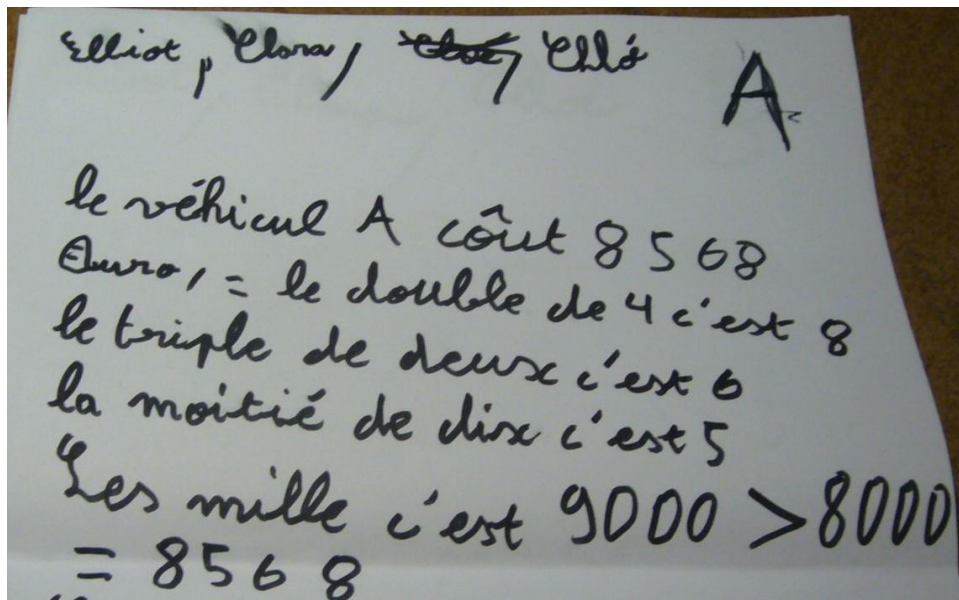 Elliot, Clara, Chlé
A
le véhicul A coût 8568
Euro, = le double de 4 c'est 8
le triple de deux c'est 6
la moitié de dix c'est 5
Les mille c'est 9000 > 8000
= 8568